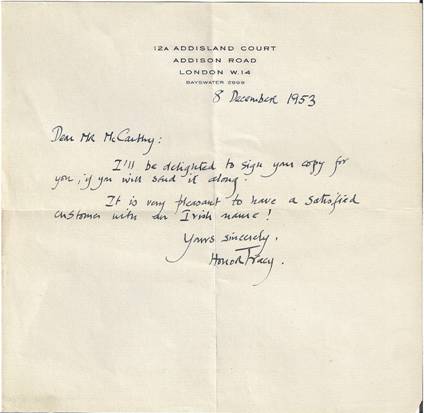 12A ADDISLAND COURT
ADDISON ROAD
LONDON W.14
BAYSWATER 2909
8 December 1953
Dear Mr McCarthy:
I'll be delighted to sign your copy for
you, if you will send it along.
It is very pleasant to have a satisfied
customer with an Irish name!
Yours sincerely,
Honor Tracy.